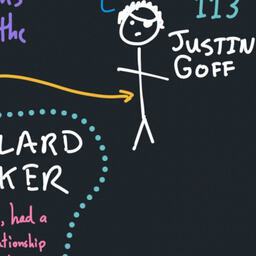 the
113
JUSTIN
GOFF
LARD
KER
, had a
tionship